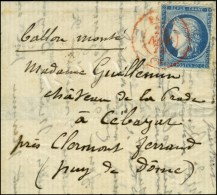 Ballon monté
Madame Guillemin
château de la Prade
à Cébazat
près Clermont ferrand
(puy de Dôme)